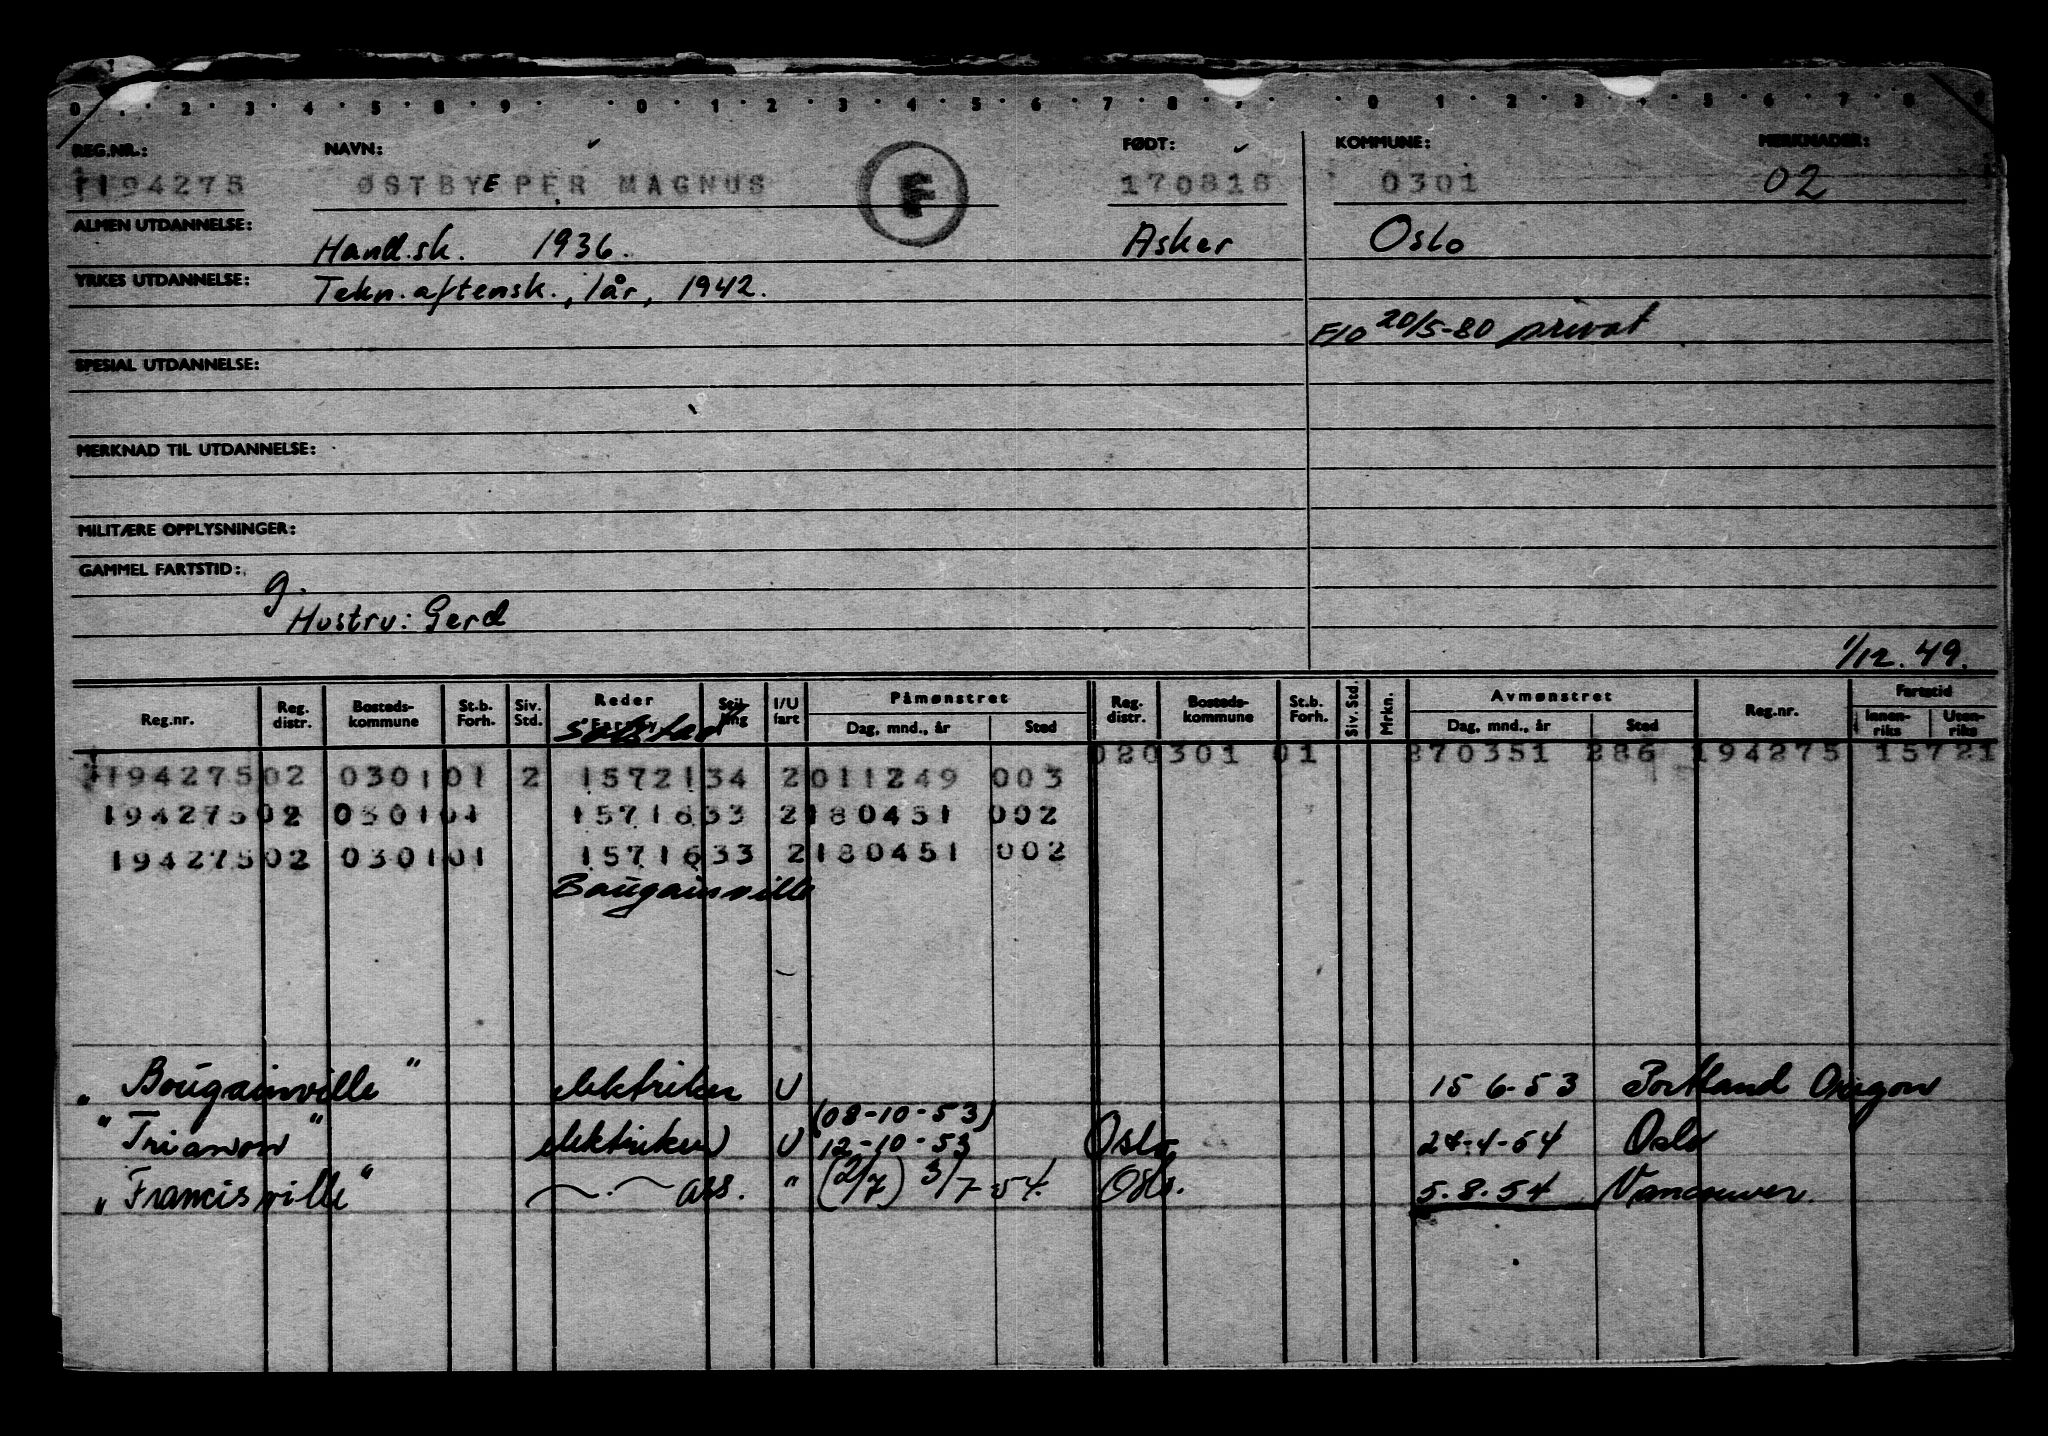 0 . 2 . 3 . 4 . 5 . 8 . 9 . . 0 . 1 . 2 . 3 . 4 . 5 . 6 . 7 . 8 . . . 0 1 . 2 . 3 . . 5 . 6 . 7 . 8 . 9
REG.NR.: NAVN: FØDT: KOMMUNE: MERKNADER:
194275 ØSTBYE PER MAGNUS F 170818 0301 02
ALMEN UTDANNELSE: Hand.sk. 1936. Asker Oslo
YRKES UTDANNELSE: Tekn. aftensk., 1 år, 1942.
F/O 20/5-80 privat
SPESIAL UTDANNELSE:
MERKNAD TIL UTDANNELSE:
MILITÆRE OPPLYSNINGER:
GAMMEL FARTSTID:
g.
Hustru: Gerd
1/12. 49.
Reg.nr. Reg. distr. Bosteds-kommune St.b. Forh. Siv. Std. Reder Stilling I/U fart Påmønstret Dag, mnd., år Sted Reg. distr. Bosteds-kommune St.b. Forh. Siv. Std. Mrkn. Avmønstret Dag, mnd., år Sted Reg.nr. Fartstid Innen-riks Uten-riks
020301 01 270351 286 194275 15721
194275 02 0301 01 2 15721 34 2 011249 003
194275 02 0301 01 15716 33 2 180451 002
194275 02 0301 01 15716 33 2 180451 002
Bougainville
"Bougainville" elektriker U 15 6-53 Portland Oregon
(08-10-53)
"Trianon" elektriker U 12-10-53 Oslo 24-4-54 Oslo
"Francisville" ass. " (2/7) 3/7-54. Oslo. 5.8.54 Vancouver.